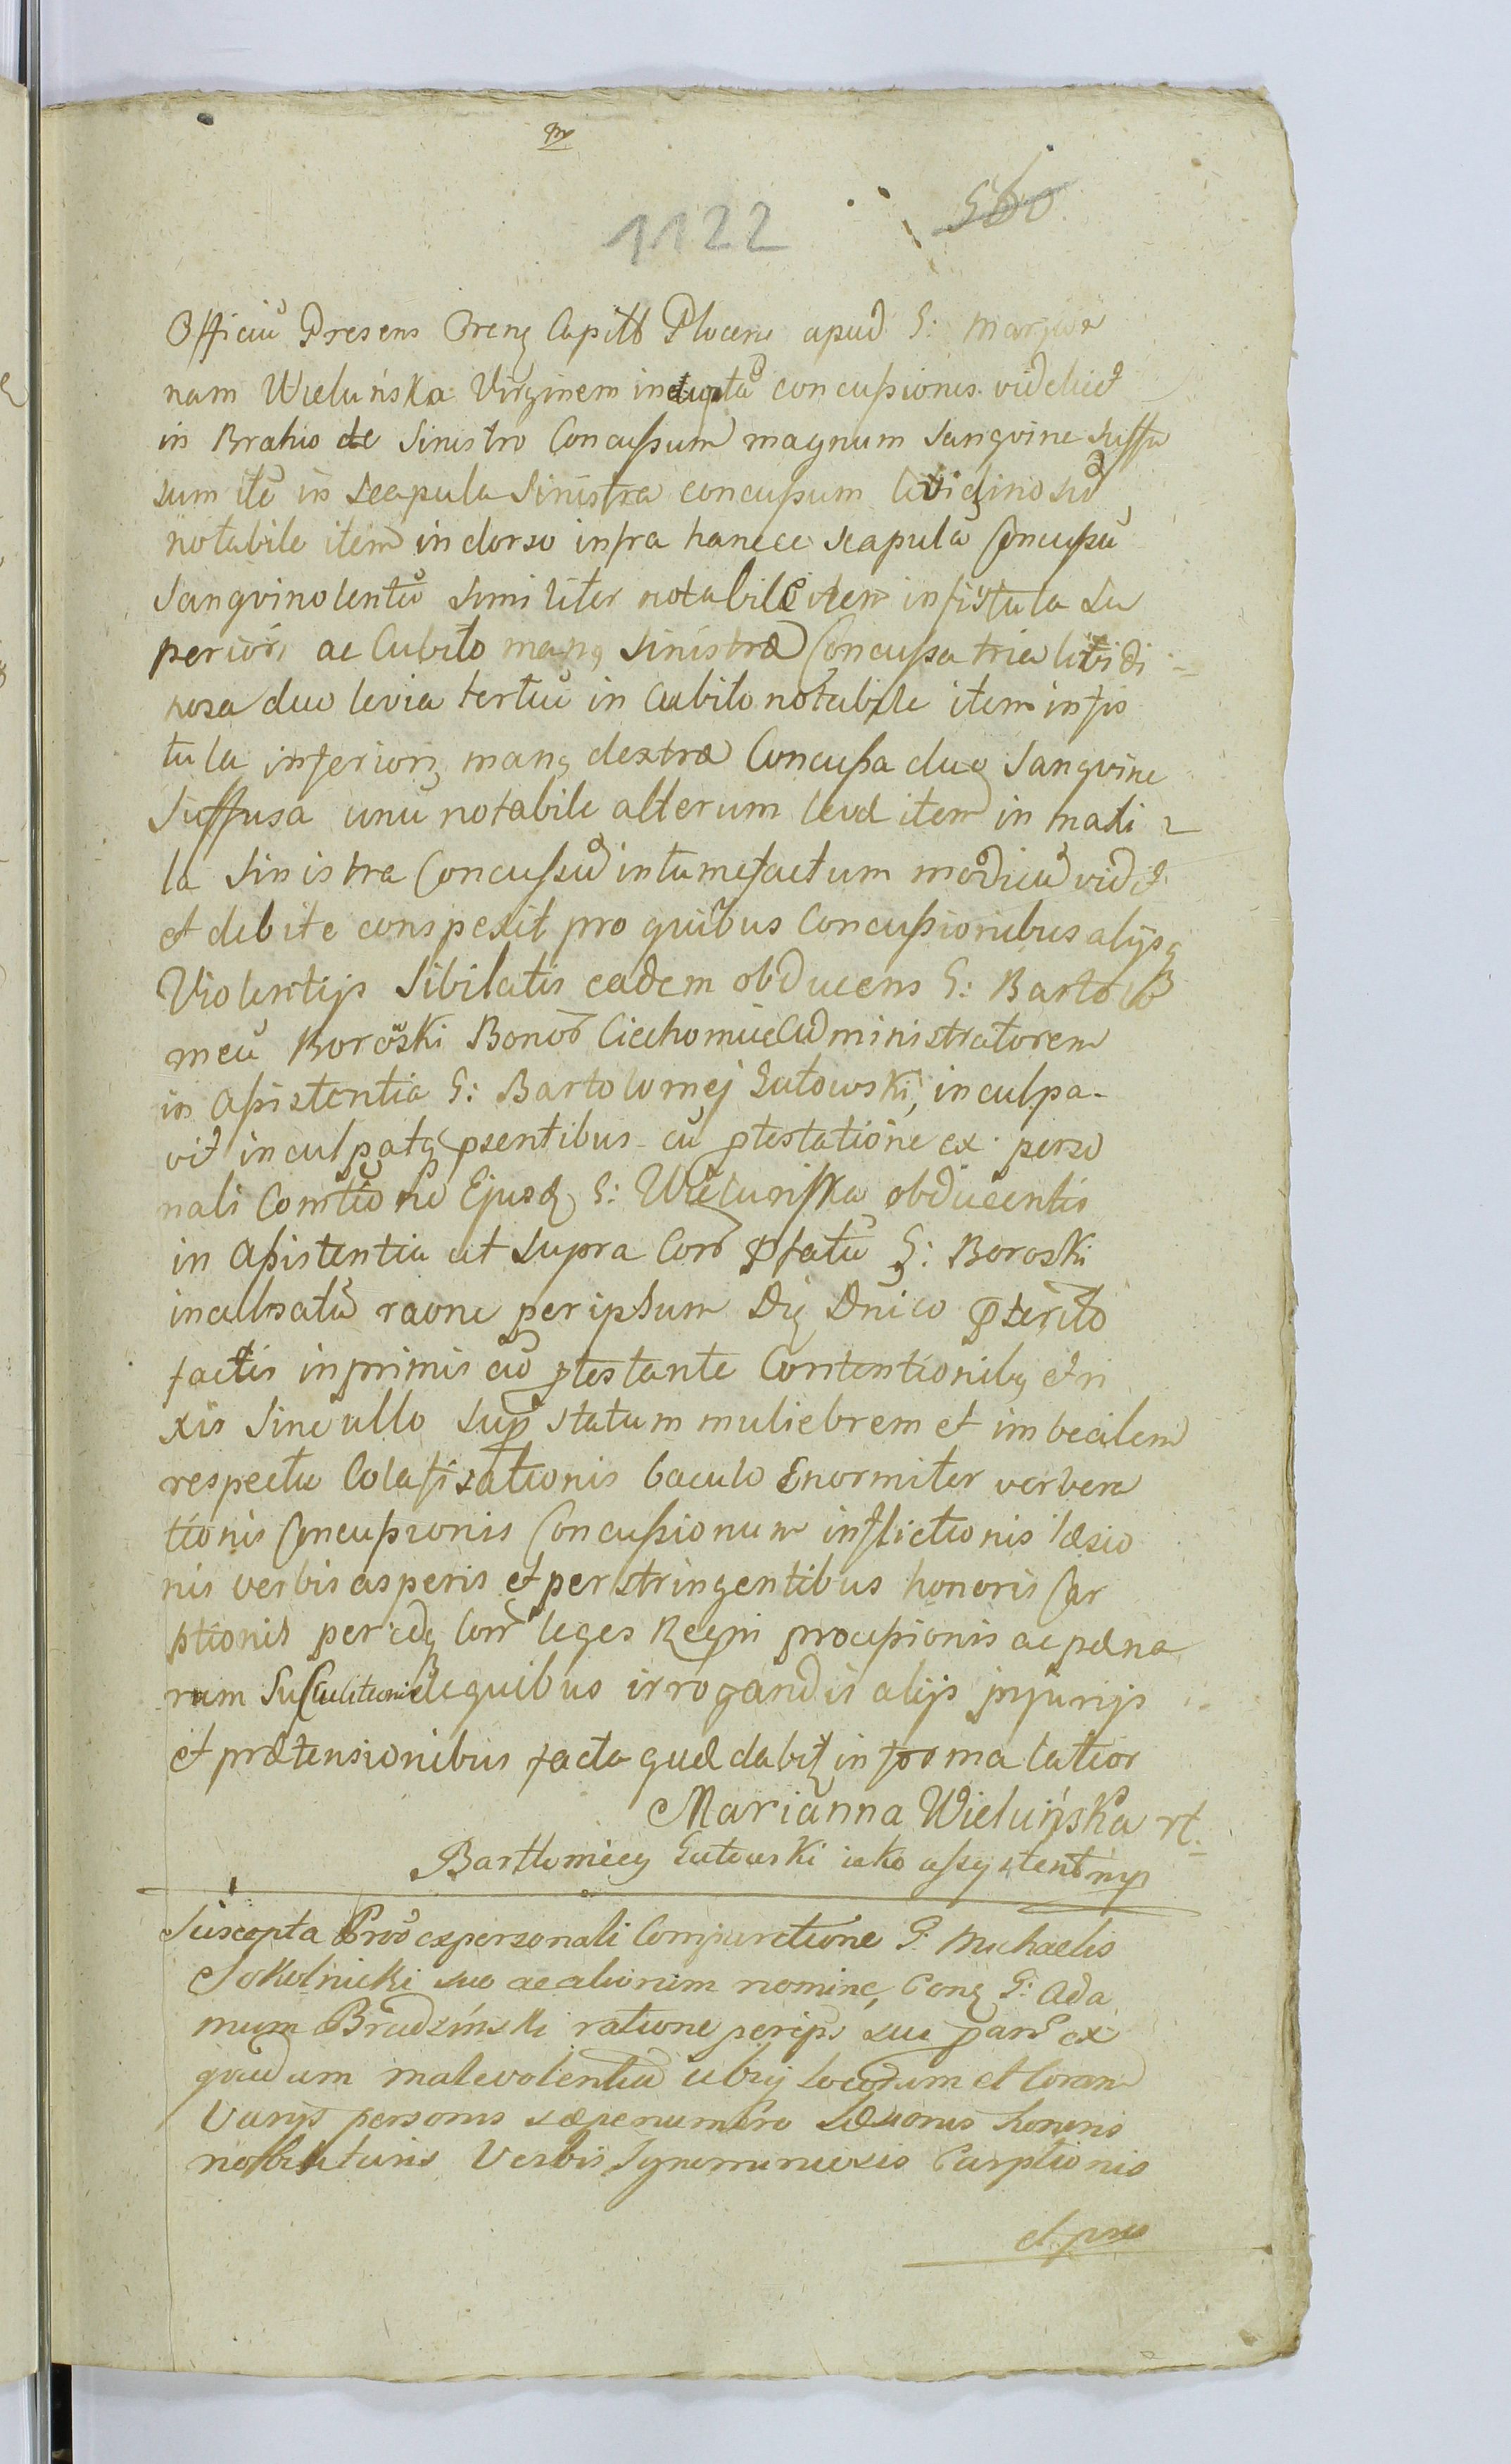 1122
560
Officiũ Presens Crenς Capitt Plocen apud G: Marjan
nam Wieluńska Virginem innuptã concussionis videlicet
in Brahio de Sinistro Concussum magnum Sangvine Suffu
sum itẽ in Scapula Sinistra concussum lividinosũ
notabile item in dorso infra hancce Scapulã Concussũ
Sangvinolentũ Similiter notabile item in fistula Su
periori ac Cubito manς Sinistræ Concussa tria lividi
nosa duo levia tertiũ in Cubito notabile item in fis
tula inferiori manς dextræ Concussa duo Sangvine
Suffusa unũ notabile alterum leve item in maxi
la Sinistra Concussũ intumefactum modicũ vidit
et debite conspexit pro quibus Concussionibus alijsq
Violentijs Sibilatis eadem obducens G: Bartolo
meũ Boroski Bonoʀ Ciechomice Administratorem
in Assistentia G: Bartolomej Gutowski, inculpa-
vit inculpatq psentibus cũ ptestatione ex perso
nali Comtione Ejusd G: Wieluńska obducentis
in Assistentia ut Supra Con pfatũ G: Boroski
inculpatũ raone per ipsum Die Dnico pterito
factis inprimis cũ ptestante Contentionibς et ri
xis Sine ullo Sup statum muliebrem et imbecilem
respectu Colafisationis baculo Enormiter verbera
tionis Concussionis Concussionum inflictionis læsio
nis verbis asperis et perstringentibus honoris Car
ptionis per idq Con leges Regni processionis ac pæna
rum Succubitionis de quibus irrogandis alijs injurijs
et prætensionibus facta quæ dabit in forma latior
Marianna Wieluńska rt.
Bartłomiey Gutowski iako assystent mp
Suscepta Pros ex personali Comparitione G: Michaelis
Sokolnicki suo ac aliorum nomine, Conς G: Ada
mum Brudzinski ratione per ips sua part ex
quadam malevolentia ubivis Locorum et Coram
Varijs personis sæpenumero Læsionis honoris
nobilitaris Verbis Ignominiosis Carptionis
et pro